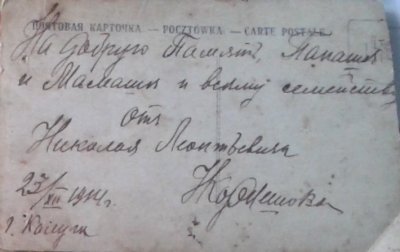 ПОЧТОВАЯ КАРТОЧКА — POCZTÓWKA — CARTE POSTALE
На добрую Память, Папаши
и Мамаши и всему семейству
отъ
Николая Леонтьевича
23/XII 19
г. Калуга